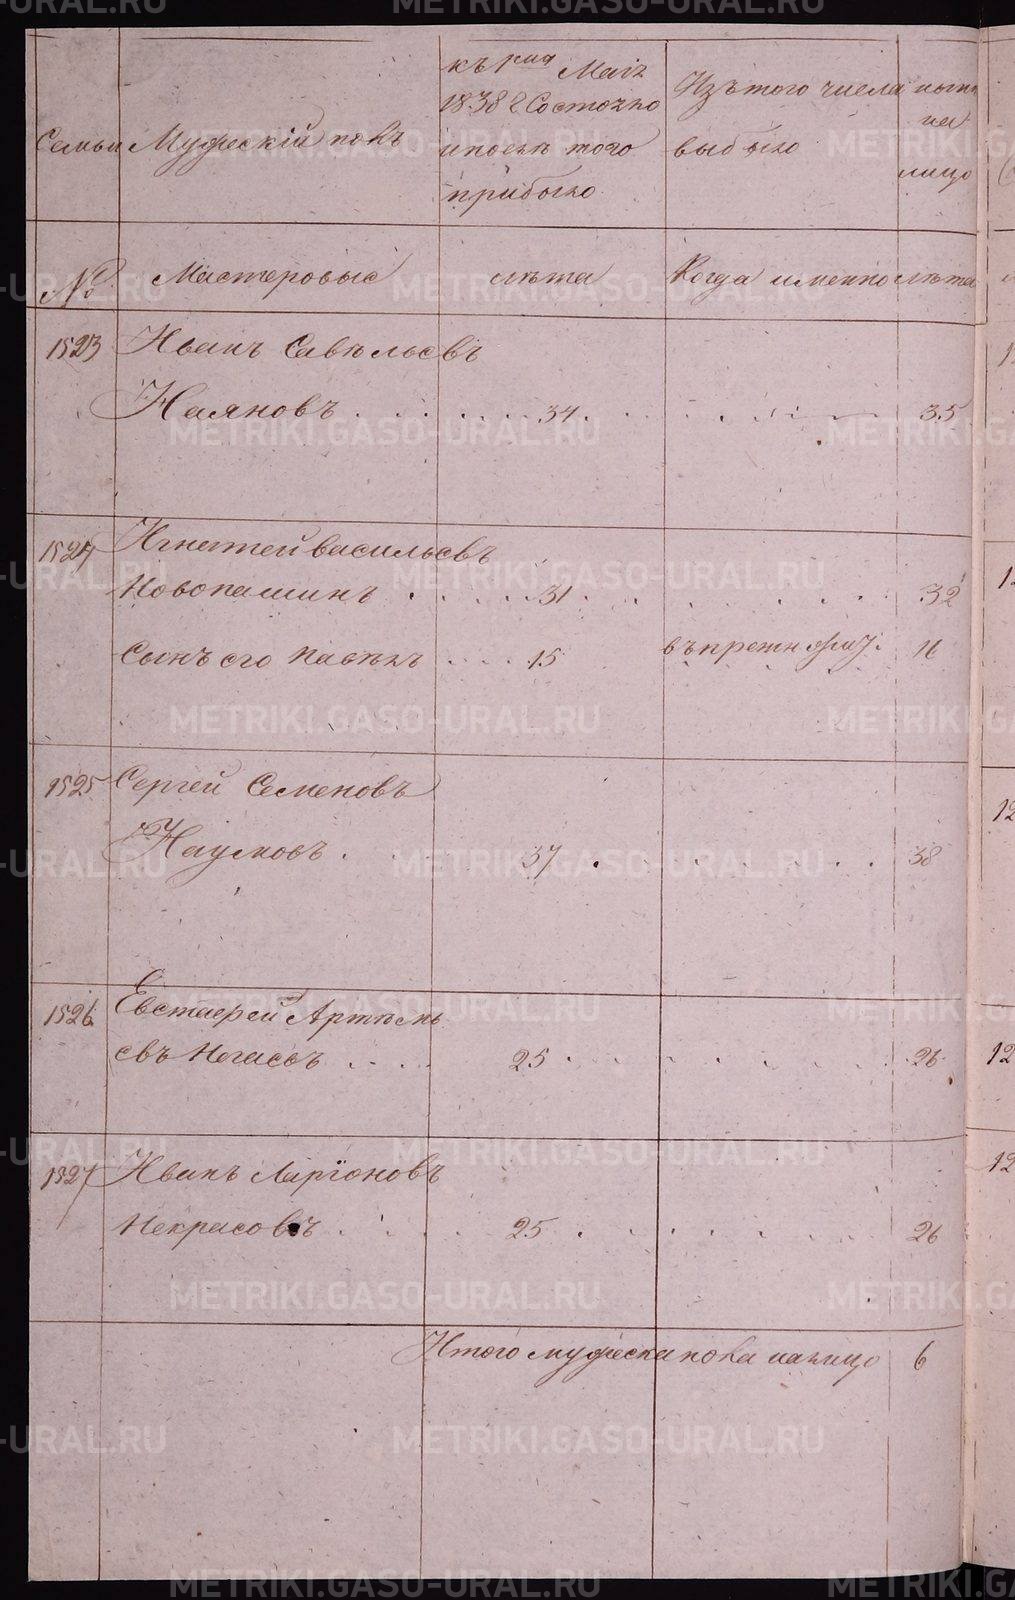 Семьи
Мужескій полъ
къ 1му Маія
1838 г Состояло
и после того
прибыло
Изъ того числа
выбыло
ныне
на
лицо
№
Мастеровые
лѣта
Когда именно
лѣта
1523 Иванъ Савѣльевъ
Наяновъ . . . . . 34 . . . . . . 35
1524 Игнатей Васильевъ
Новопашинъ . . . . 31 . . . . . . 32
Сынъ его Павелъ . . . 15 16
1525 Сергей Семеновъ
Наумовъ . . . 37 . . . . . . 38
1526 Евстафей Артемь
евъ . . . 25 . . . . . . 26
1527 Иванъ Ларіоновъ
Некрасовъ . . . . 25 . . . . . . 26
Итого мужеска пола налицо 6
METRIKI.GASO-URAL.RU